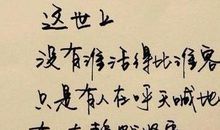 这世上
没有谁活得比谁容
只是有人在呼天喊地